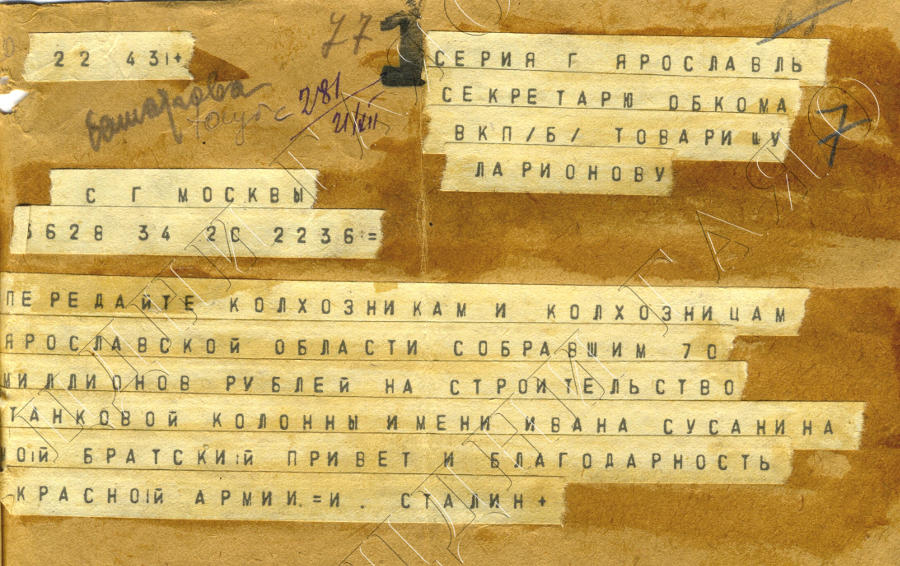 77
22 43i+
281
21/VII
СЕРИЯ Г ЯРОСЛАВЛЬ
СЕКРЕТАРЮ ОБКОМА
ВКП/Б/ ТОВАРИЩУ
ЛАРИОНОВУ
7
С Г МОСКВЫ
628 34 20 2236=
ПЕРЕДАЙТЕ КОЛХОЗНИКАМ И КОЛХОЗНИЦАМ
ЯРОСЛАВСКОЙ ОБЛАСТИ СОБРАВШИМ 70
МИЛЛИОНОВ РУБЛЕЙ НА СТРОИТЕЛЬСТВО
ТАНКОВОЙ КОЛОННЫ ИМЕНИ ИВАНА СУСАНИНА
МОЙ БРАТСКИЙ ПРИВЕТ И БЛАГОДАРНОСТЬ
КРАСНОЙ АРМИИ.=И. СТАЛИН+